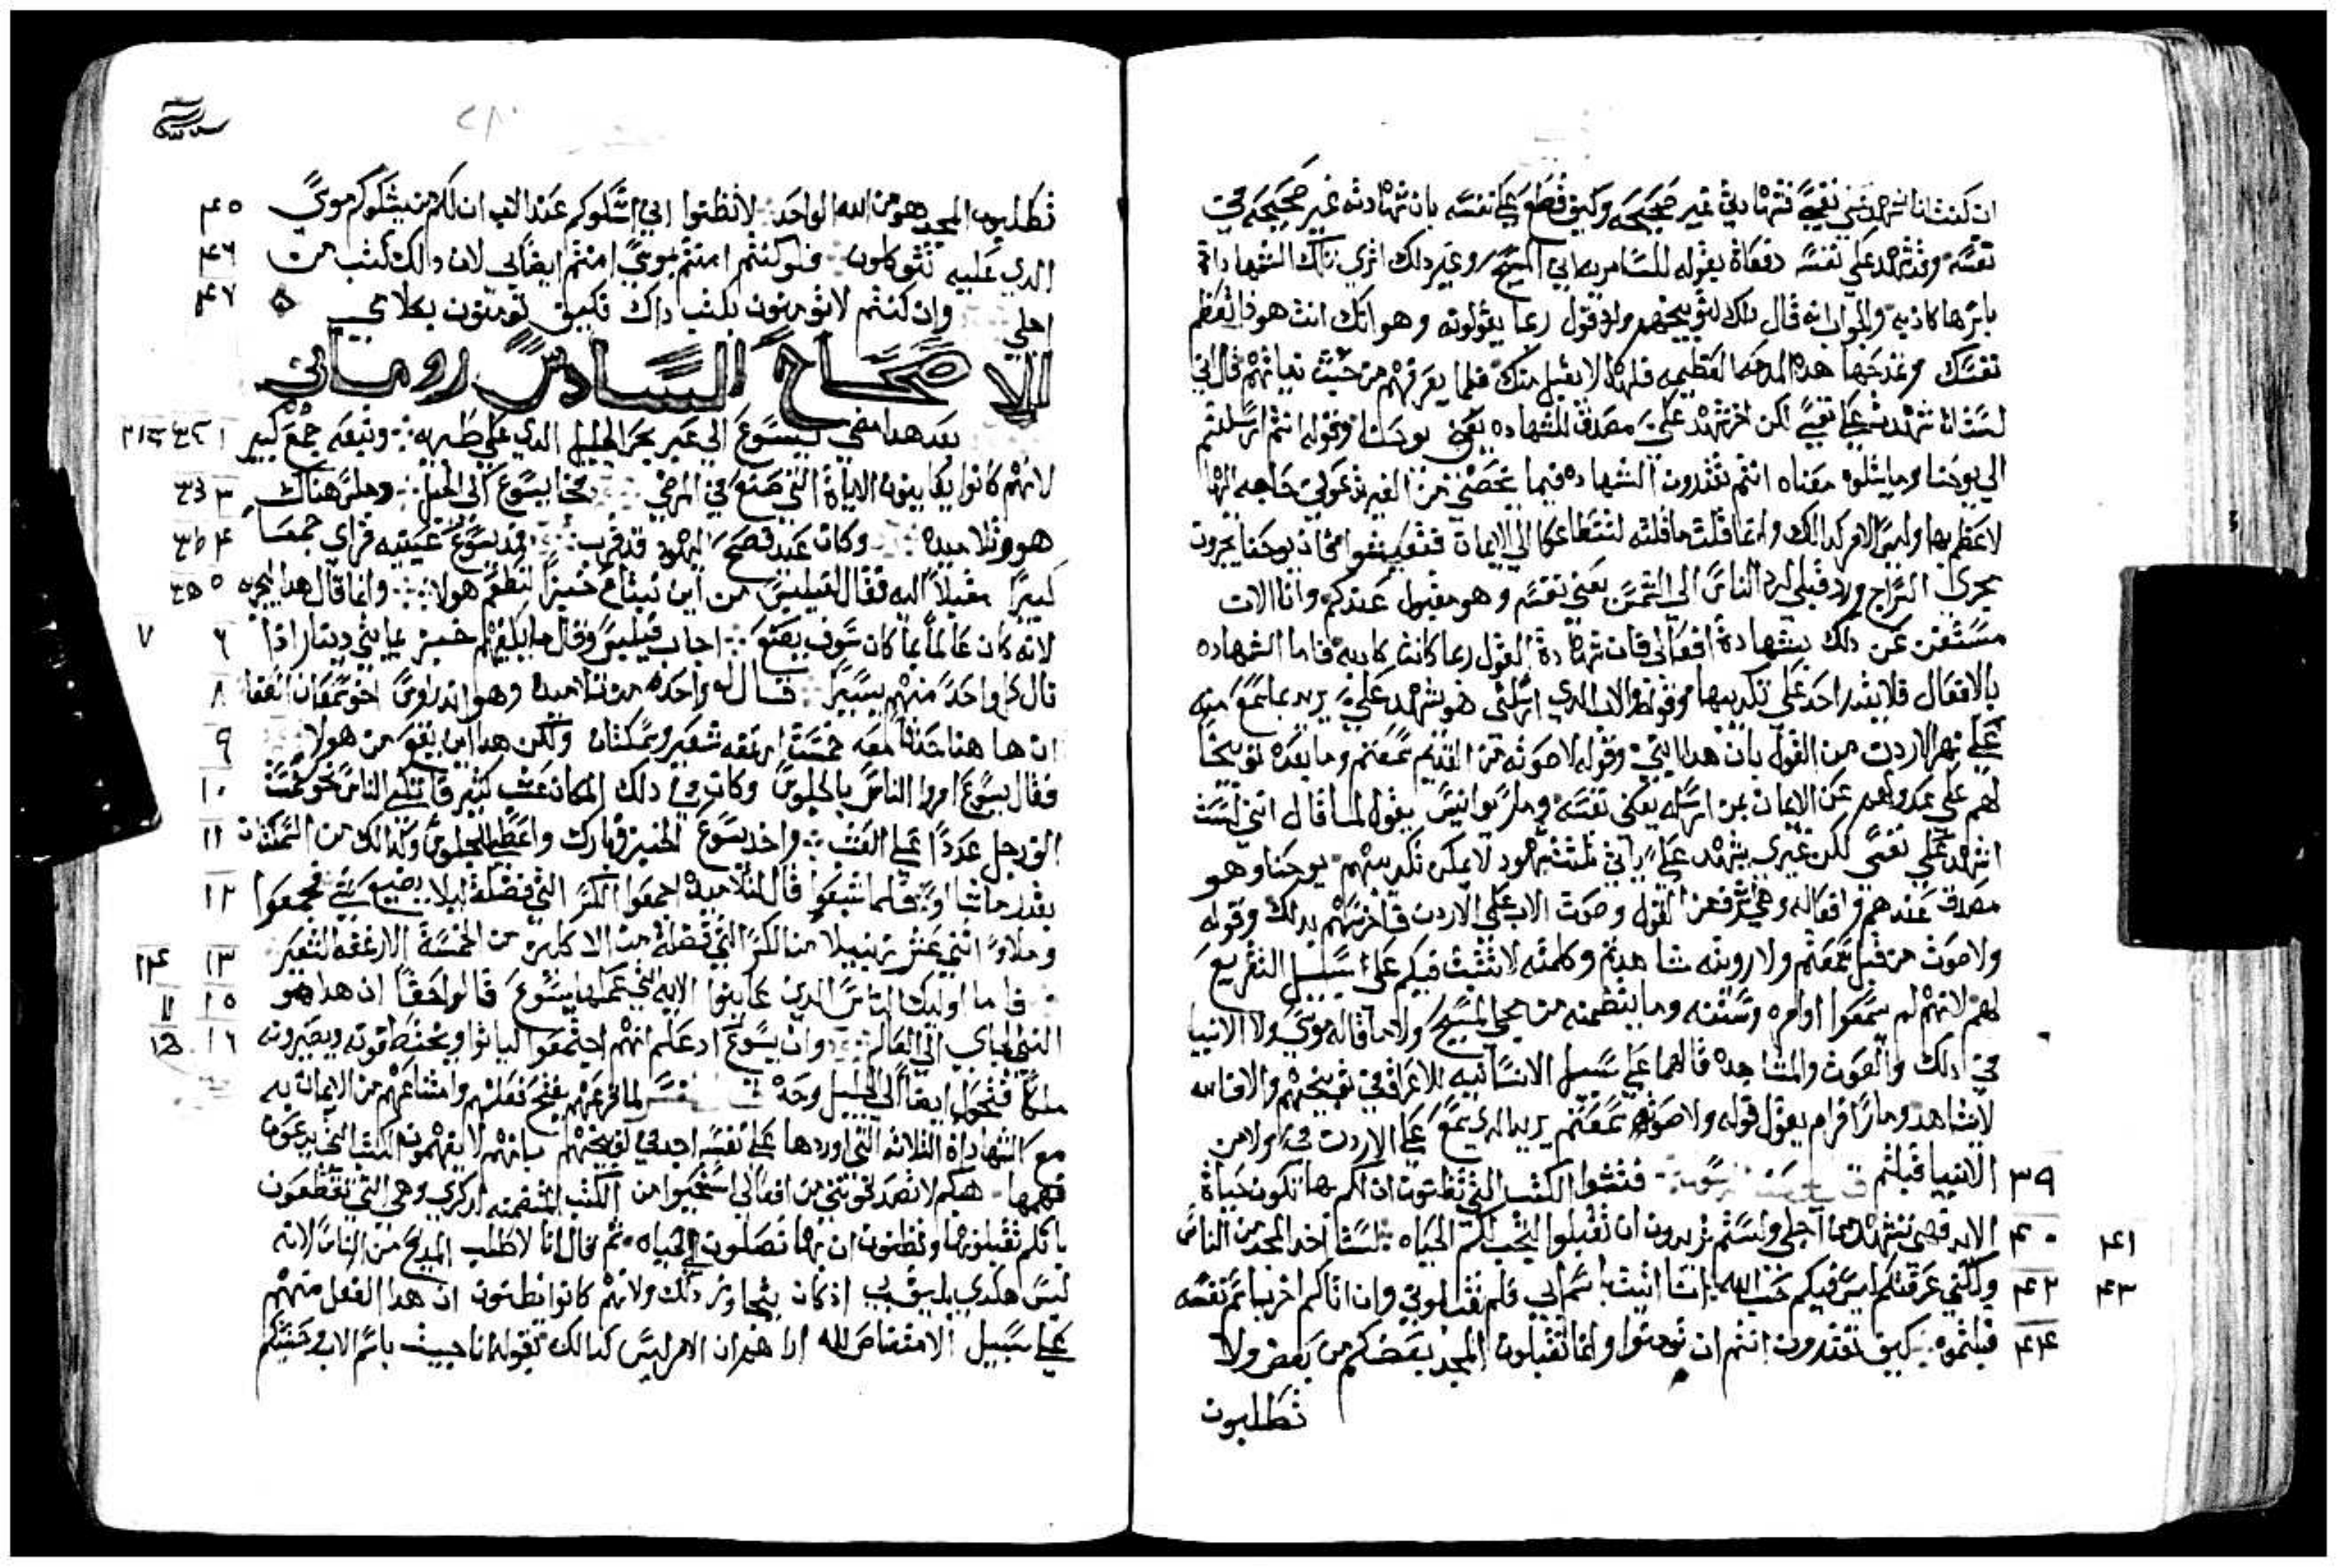 ان كنت انا اشهد على نفسي فشهادتي غير صحيحه وكيف قطع على نفسه بان شهادته غير صحيحه في
نفسه وقد شهد على نفسه دفعاة بقوله للسامريه اني المسيح وغير دلك اتري تلك الشهاداة
باسرها كاذبه والجواب انه قال دلك لتوبيخهم ولدفع قول ربما يقولونه وهو انك انت هودا تعظم
نفسك وتمدحها هده المدحه العظيمه فلهدا لا يقبل منك فلما يعرفهم من حيث نياتهم قال اني
لست انا شهدت على نفسي لكن اخر شهد علي مصدق للشهاده يعني يوحنا وقوله انتم ارسلتم
الي يوحنا وما يتلوه معناه انتم تعتقدون الشهاده فيما يخصني من الغير تدعوني حاجه الىها
لاعظم بها وليس الامر كدالك وانما قلت ما قلته لنتطاعكا الي الايمان فتعيشوا فمي اذ يوحنا يجرون
مجري السراج ورد قبلي ليرد الناس الي الشمس يعني نفسه وهو مقبول عندكم وانا الان
مستغن عن دلك بشهادة افعالي فان شهادة القول ربما كانت كادبه فاما الشهاده
بالافعال فلا يقدر احد على تكديبها وقوله والاب الدي ارسلني هو يشهد علي يريد بما سمع منه
على نهر الاردن من القول بان هدا ابني وقوله لا صوته من القديم سمعتم وما بعده توبيخا
لهم على عدولهم عن الايمان بمن ارسله يعني نفسه ومار يوانيس يقول لما قال انني لست
اشهد على نفسي لكن غيري يشهد علي ياتي بثلثت شهود لا يمكن تكديبهم يوحنا وهو
مصدق عندهم وافعاله وهي اشرف من القول وصوت الاب على الاردن فاخرسهم بدلك وقوله
ولا صوت من قبل سمعتم ولا رويته شاهدتم وكلمته لا تثبت فيكم على سبيل التقريع
لهم لانهم لم يسمعوا اوامره وسننه وما ينتظمنه من مجي المسيح ولا ما قاله موسي ولا الانبيا
في دلك والصوت والمشاهده قالهما على سبيل الانسانيه للاغراق في توبيخهم والا فالله
لا يشاهد ومار افرام يقول قوله ولا صوته سمعتم يريد الدي سمع على الاردن في ولا من
٣٩ الانبيا قبلتم فتشوا الكتب التي تظنون ان لكم بها تكون حياة
٤٠ ٤١ الابد فهي تشهد من اجلي ولستم تريدون ان تقبلوا لتجب لكم الحياه لست اخد المجد من الناس
٤٢ ٤٣ ولكني عرفتكم ليس فيكم حب الله انا اتيت باسم ابي فلم تقبلوني وان اتاكم اخر باسم نفسه
٤٤ قبلتموه كيف تقتدرون انتم ان تومنوا وانما تقبلون المجد بعضكم من بعض ولا
تطلبون
٤٥ تطلبون المجد هو من الله الواحد لا تظنوا اني اشكوكم عند الاب ان لكم من يشكوكم موسي
٤٦ الدي عليه تتوكلون فلو كنتم امنتم بموسي امنتم ايضا بي لان دالك كتب من
٤٧ اجلي وان كنتم لا تومنون بكتب داك فكيف تومنون بكلامي
الاصحاح السادس روماني
١ ٢ بعد هدا مضي يسوع الي عبر بحر الجليل الدي على طبريه وتبعه جمع كبير
٣ لانهم كانوا يعاينون الاياة التي صنع في المرضي فجا يسوع الي الجبل وجلس هناك
٤ هو وتلاميده وكان عيد فصح اليهود قد قرب فمد يسوع عينيه فراي جمعا
٥ كبيرا مقبلا اليه فقال لفيلبس من اين نبتاع خبزا لنطعم هولا وانما قال هدا ليجربه
٦ ٧ لانه كان عالما بما كان سوف يصنع اجاب فيلبس وقال ما يكفيهم خبز بمايتي دينار ادا
٨ نال كل واحد منهم يسيرا قال له واحد من تلاميده وهو اندراوس اخو سمعان الصفا
٩ ان ها هنا حدثا معه خمست ارغفه شعير وسمكتان ولكن هدا اين يقع من هولا
١٠ فقال يسوع امروا الناس بالجلوس وكان في دلك المكان عشب كثير فاتكي الناس نحو خمست
١١ الف رجل عددا على العشب واخد يسوع الخبز وبارك واعطا الجلوس وكدالك من السمكتان
١٢ بقدر ما شاوا فلما شبعوا قال لتلاميده اجمعوا الكسر التي فضلة ليلا يضيع شي فجمعوا
١٣ ١٤ وملاوا اثني عشر زنبيلا من الكسر التي فضلة من الاكلين من الخمسة الارغفه الشعير
١٥ فاما اوليك الناس الدين عاينوا الايه التي عملها يسوع قالوا حقا ان هدا هو
١٦ النبي الجاي الي العالم وان يسوع اد علم انهم اجتمعوا لياتوا ويختطفونه ويصيرونه
ملكا فتحول ايضا الي الجبل وحده لما قرعهم بقبح فعلهم وامتناعهم من الايمان به
مع الشهاداة الثلاثه التي اوردها على نفسه اخد في توبيخهم بانهم لا يفهمون الكتب التي يدعون
فهمها هبكم لا تصدقونني من افعالي استخبروا من الكتب المتضمنه دكري وهي التي تقطعون
بانكم تقبلونها وتظنون ان بها تصلون الي الحياه ثم قال انا لا اطلب المديح من الناس لانه
ليس هكدي يليق بي ادكان يتجاوز دلك ولانهم كانوا يظنون ان هدا الفعل منهم
على سبيل الامتعاض لله ارا هم ان الامر ليس كدالك بقوله انا جيت باسم الاب وجيتكم